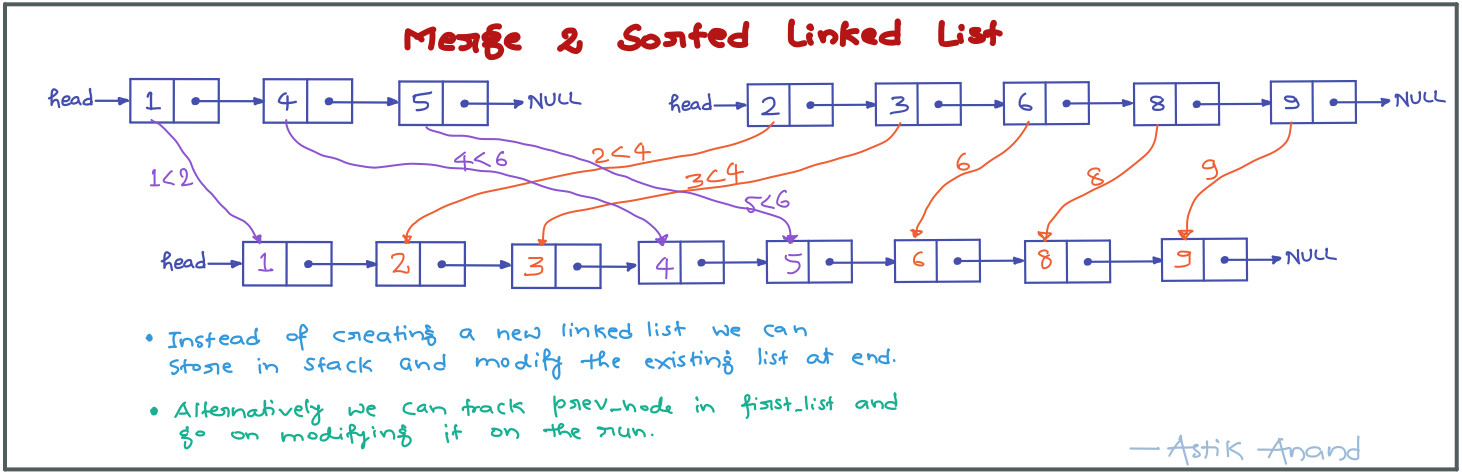 Merge 2 Sorted Linked List
head 1 4 5 NULL head 2 3 6 8 9 NULL
1<2 4<6 2<4 3<4 5<6 6 8 9
head 1 2 3 4 5 6 8 9 NULL
• Instead of creating a new linked list we can
store in stack and modify the existing list at end.
• Alternatively we can track prev_node in first_list and
go on modifying it on the run.
— Astik Anand